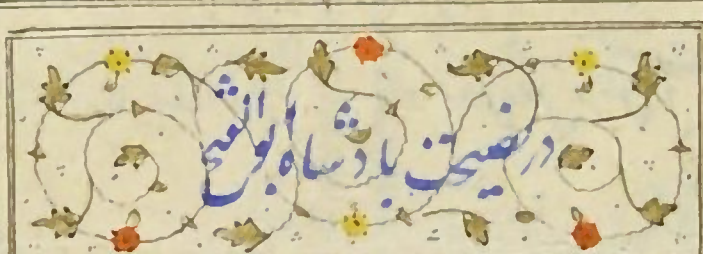 در نصیحت پادشاه ابوالفتح